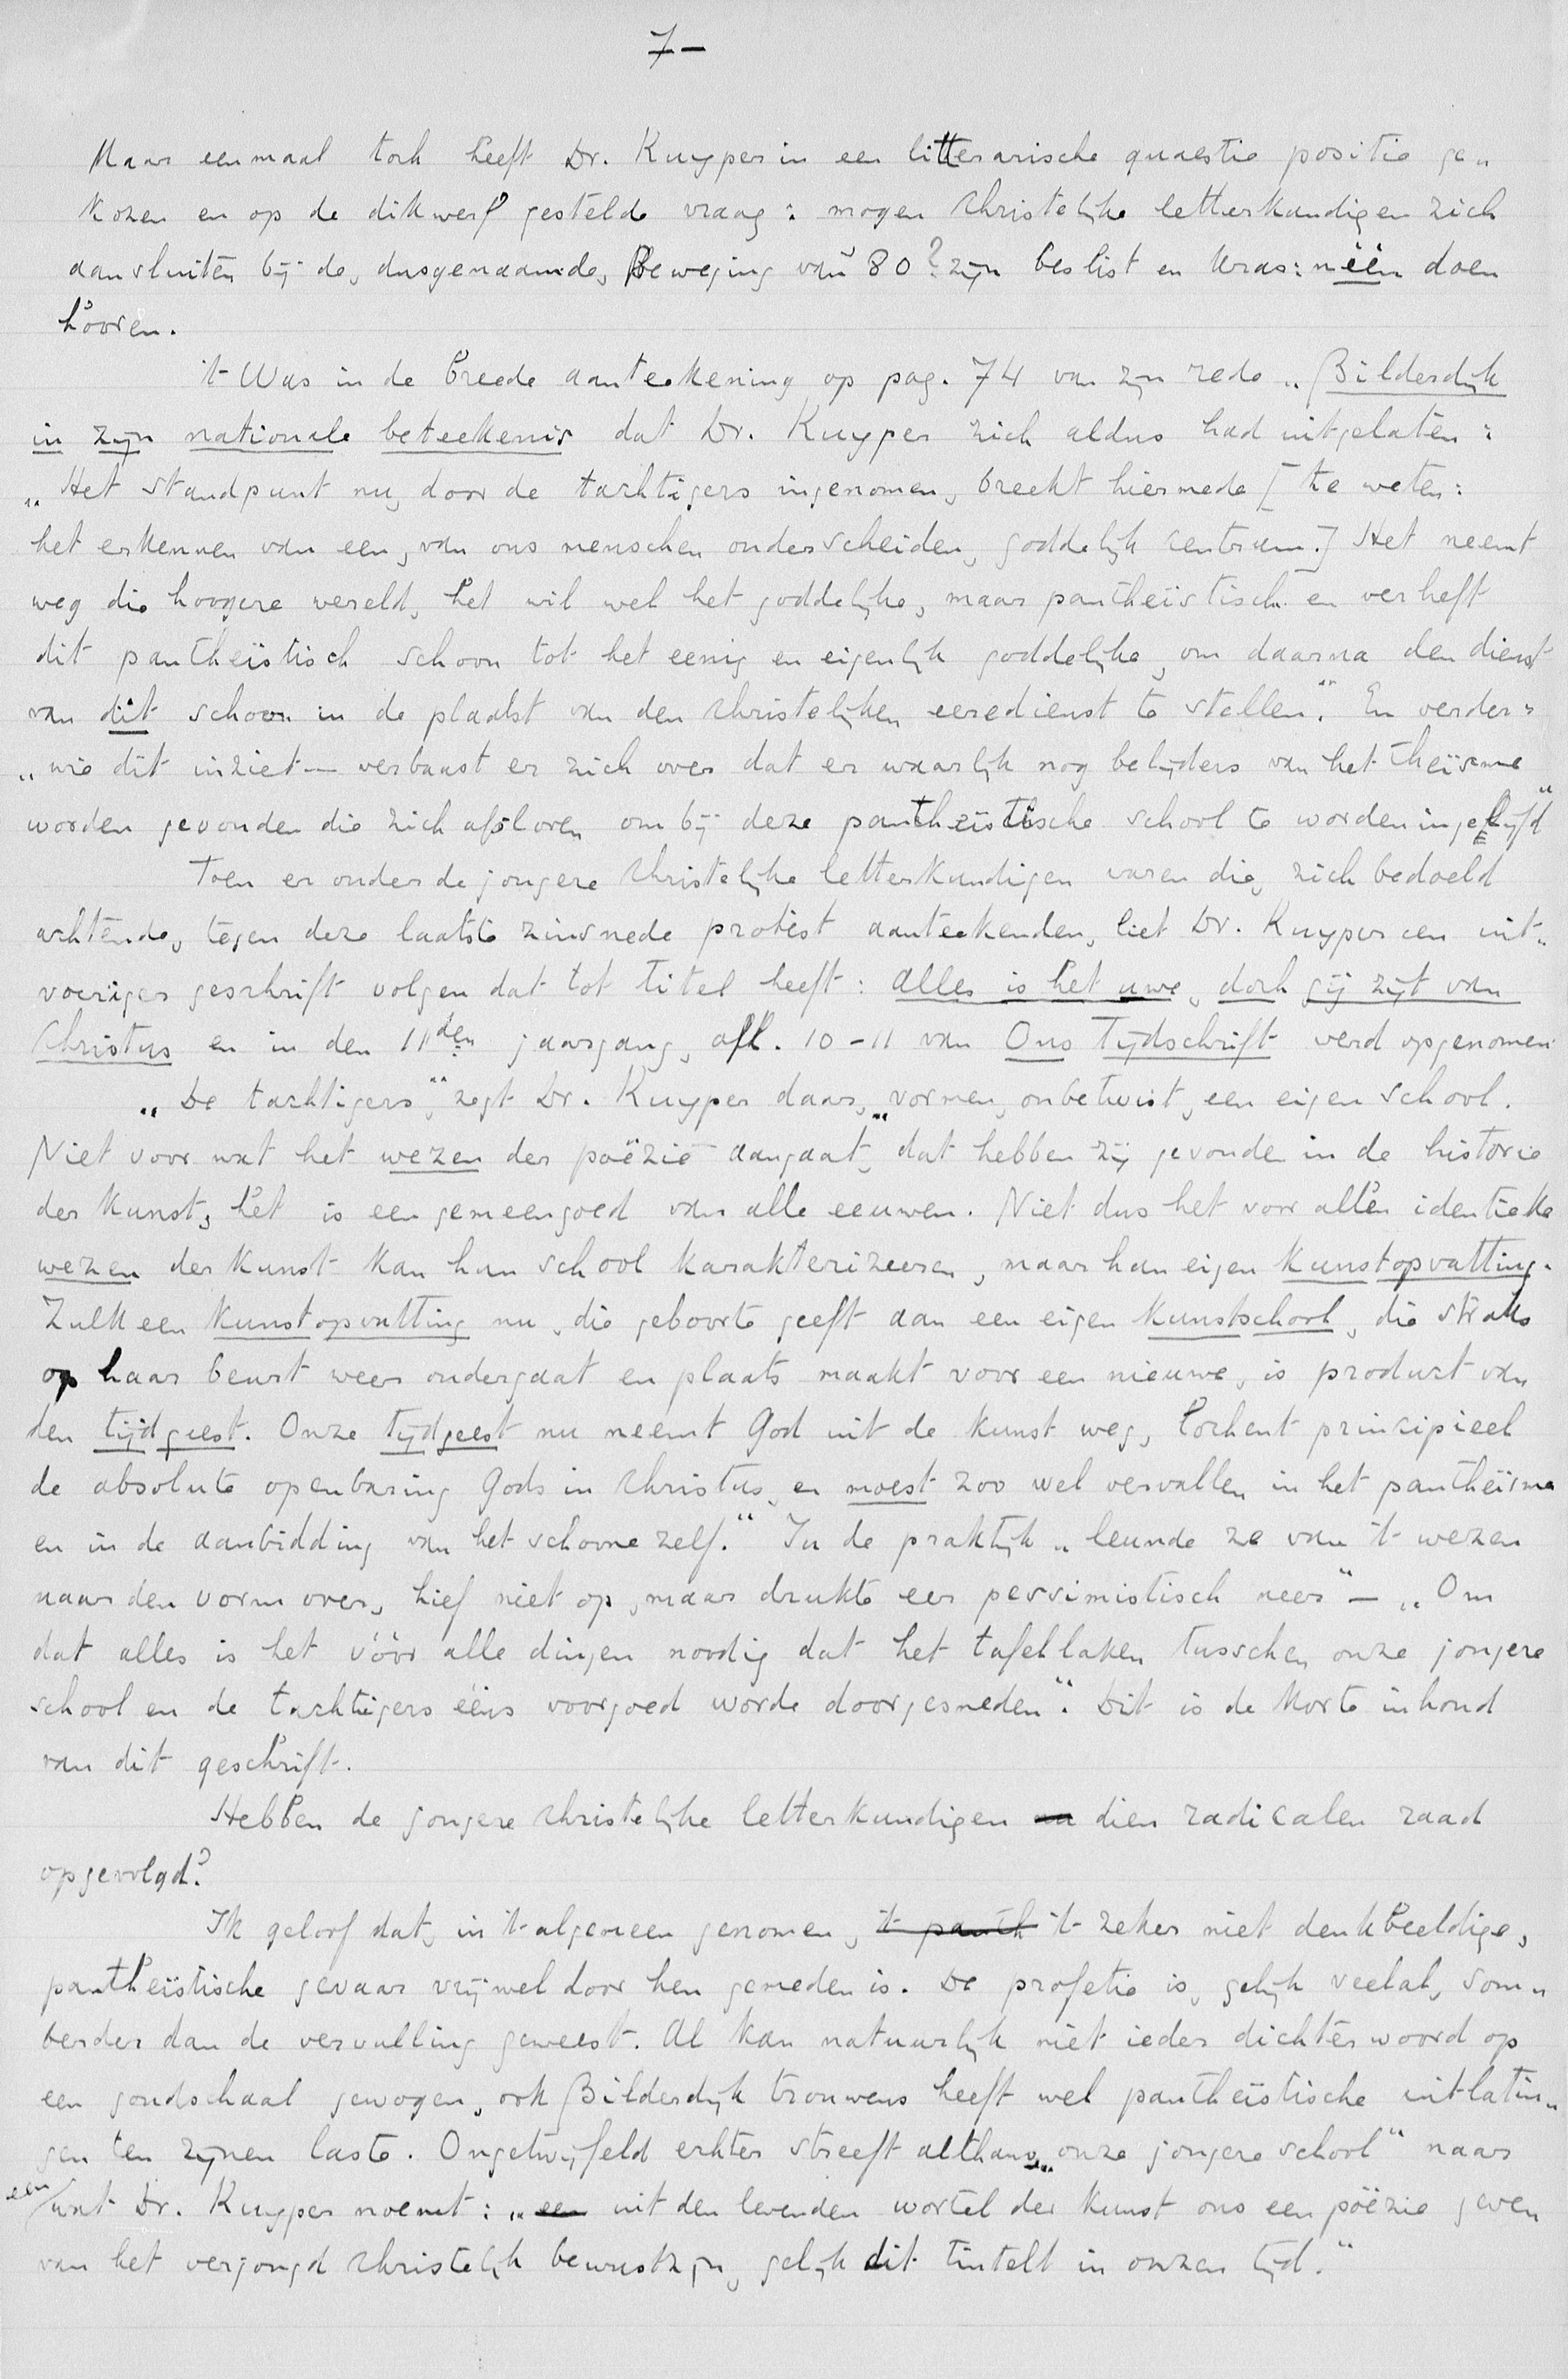 7-
Maar eenmaal toch heeft Dr. Kuyper in een litterarische quaestie positie ge„
kozen en op de dikwerf gestelde vraag: mogen Christelijke letterkundigen zich
aansluiten bij de, dusgenaamde, Beweging van 80? zijn beslist en kras: néén doen
hooren.
't Was in de breede aanteekening op pag. 74 van zijn rede „Bilderdijk
in zijn nationale beteekenis dat Dr. Kuyper zich aldus had uitgelaten:
„Het standpunt nu, door de tachtigers ingenomen, breekt hiermede [te weten:
het erkennen van een, van ons menschen onderscheiden, goddelijk centrum.] Het neemt
weg die hoogere wereld, het wil wel het goddelijke, maar pantheïstisch en verheft
dit pantheïstisch schoon tot het eenig en eigenlijk goddelijke, om daarna den dienst
van dit schoon in de plaatst van den Christelijken eeredienst te stellen." En verder:
„wie dit inziet — verbaast er zich over dat er waarlijk nog belijders van het theïsme
worden gevonden die zich afsloven om bij deze pantheïstische school te worden ingelijfd"
Toen er onder de jongere Christelijke letterkundigen waren die, zich bedoeld
achtende, tegen deze laatste zinsnede protest aanteekenden, liet Dr. Kuyper een uit„
voeriger geschrift volgen dat tot titel heeft: Alles is het uwe, doch gij zijt van
Christus en in den 11den jaargang, afl. 10-11 van Ons Tijdschrift werd opgenomen
„De tachtigers," zegt Dr. Kuyper daar, „vormen, onbetwist, een eigen school.
Niet voor wat het wezen der poëzie aangaat, dat hebben zij gevonde in de historie
der kunst, het is een gemeengoed van alle eeuwen. Niet dus het voor allen identieke
wezen der kunst kan hun school karakterizeeren, maar hun eigen kunstopvatting.
Zulk een kunstopvatting nu, die geboorte geeft aan een eigen kunstschool, die straks
op haar beurt weer ondergaat en plaats maakt voor een nieuwe, is product van
den tijdgeest. Onze tijdgeest nu neemt God uit de kunst weg, lochent principieel
de absolute openbaring Gods in Christus, en moest zoo wel vervallen in het pantheïsme
en in de aanbidding van het schoone zelf." In de praktijk „leunde ze van 't wezen
naar den vorm over, hief niet op, maar drukte eer pessimistisch neer" — „Om
dat alles is het vóór alle dingen noodig dat het tafellaken tusschen onze jongere
school en de tachtigers ééns voorgoed worde doorgesneden". Dit is de korte inhoud
van dit geschrift.
Hebben de jongere Christelijke letterkundigen dien radicalen raad
opgevolgd?
Ik geloof dat, in 't algemeen genomen, 't panth 't zeker niet denkbeeldige,
pantheïstische gevaar vrijwel door hen gemeden is. De profetie is, gelijk veelal, som„
berder dan de vervulling geweest. Al kan natuurlijk niet ieder dichterwoord op
een goudschaal gewogen, ook Bilderdijk trouwens heeft wel pantheïstische uitlatin„
gen ten zijnen laste. Ongetwijfeld echter streeft althans „onze jongere school" naar
een wat Dr. Kuyper noemt: „een uit den levenden wortel der kunst ons een poëzie geven
van het verjongd Christelijk bewustzijn, gelijk dit tintelt in onzen tijd."